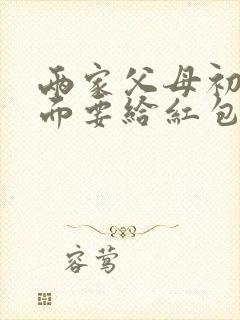 两家父母初
而要给红包
容莺